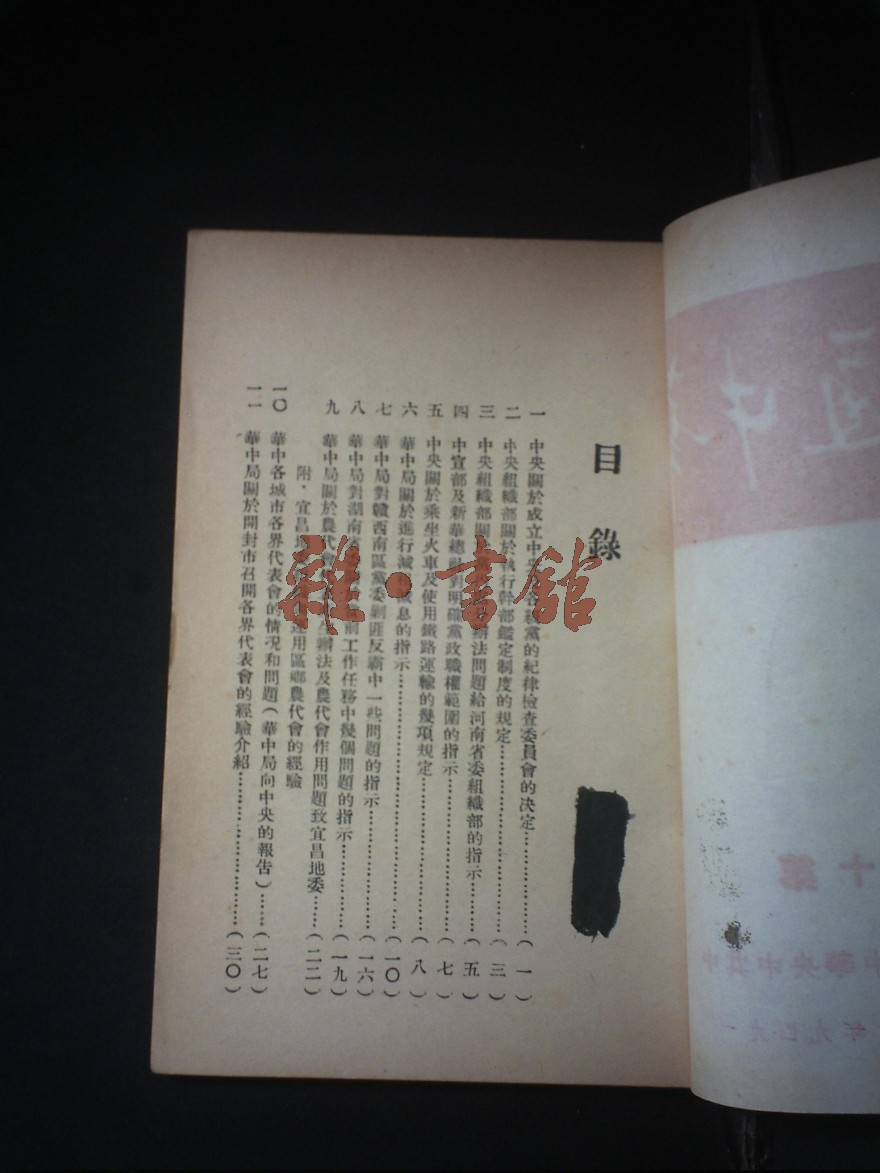 目錄
一 中央關於成立中央及各級黨的紀律檢查委員會的決定……(一)
二 中央組織部關於執行幹部鑑定制度的規定……(三)
三 中央組織部關 辦法問題給河南省委組織部的指示……(五)
四 中宣部及新華總社對明確黨政職權範圍的指示……(七)
五 中央關於乘坐火車及使用鐵路運輸的幾項規定……(八)
六 華中局關於進行減租減息的指示……(一〇)
七 華中局對贛西南區黨委剿匪反霸中一些問題的指示……(一六)
八 華中局對湖南省 前工作任務中幾個問題的指示……(一九)
九 華中局關於農代會 辦法及農代會作用問題致宜昌地委……(二二)
附·宜昌地委 運用區鄉農代會的經驗
一〇 華中各城市各界代表會的情況和問題(華中局向中央的報告)……(二七)
一一 華中局關於開封市召開各界代表會的經驗介紹……(三〇)
雜·書館